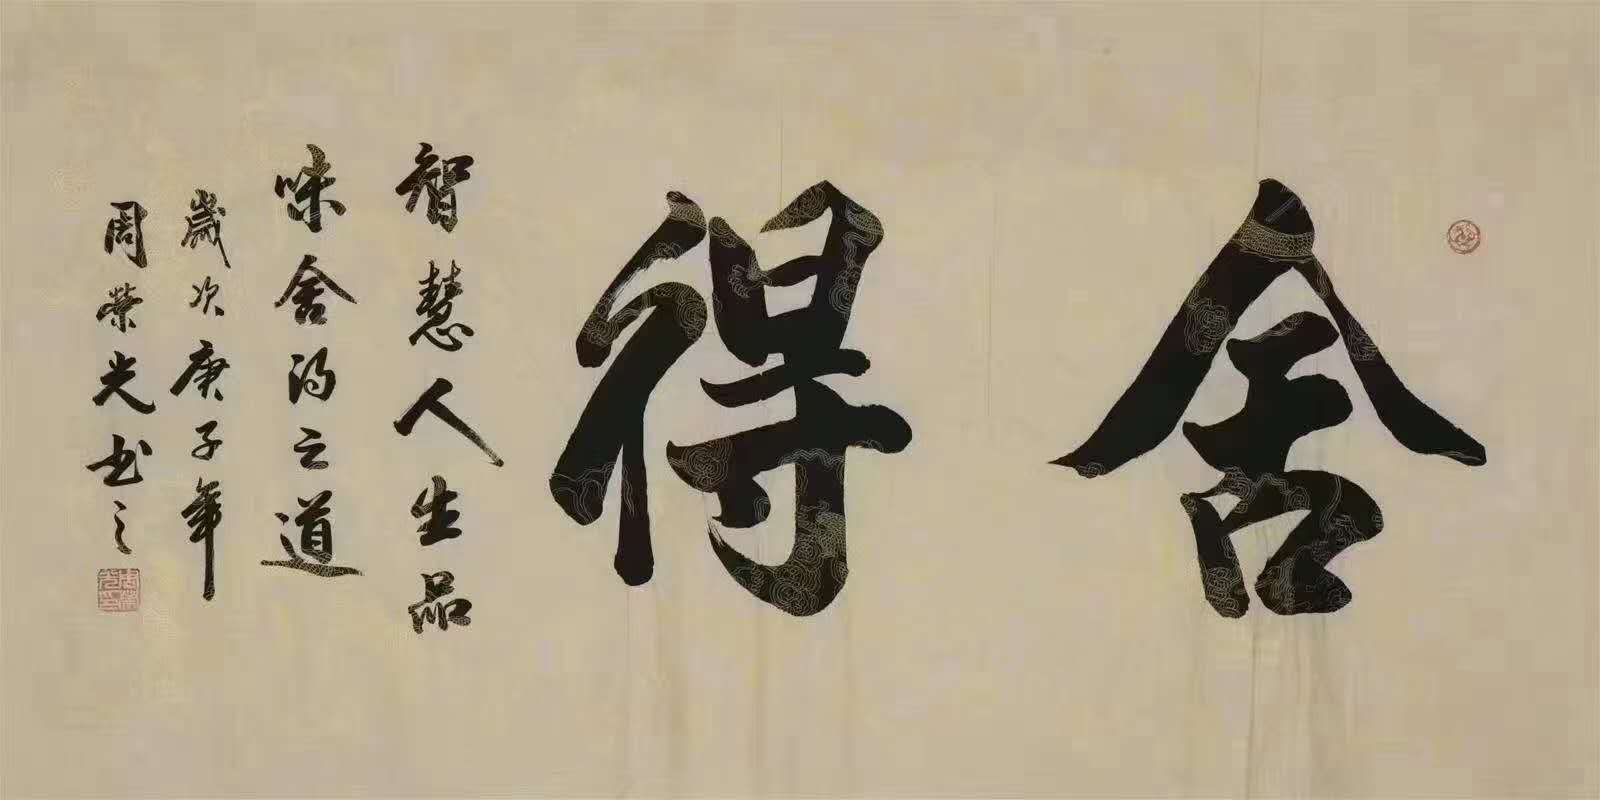 舍得
智慧人生品
味舍得之道
歲次庚子年
周榮光书之